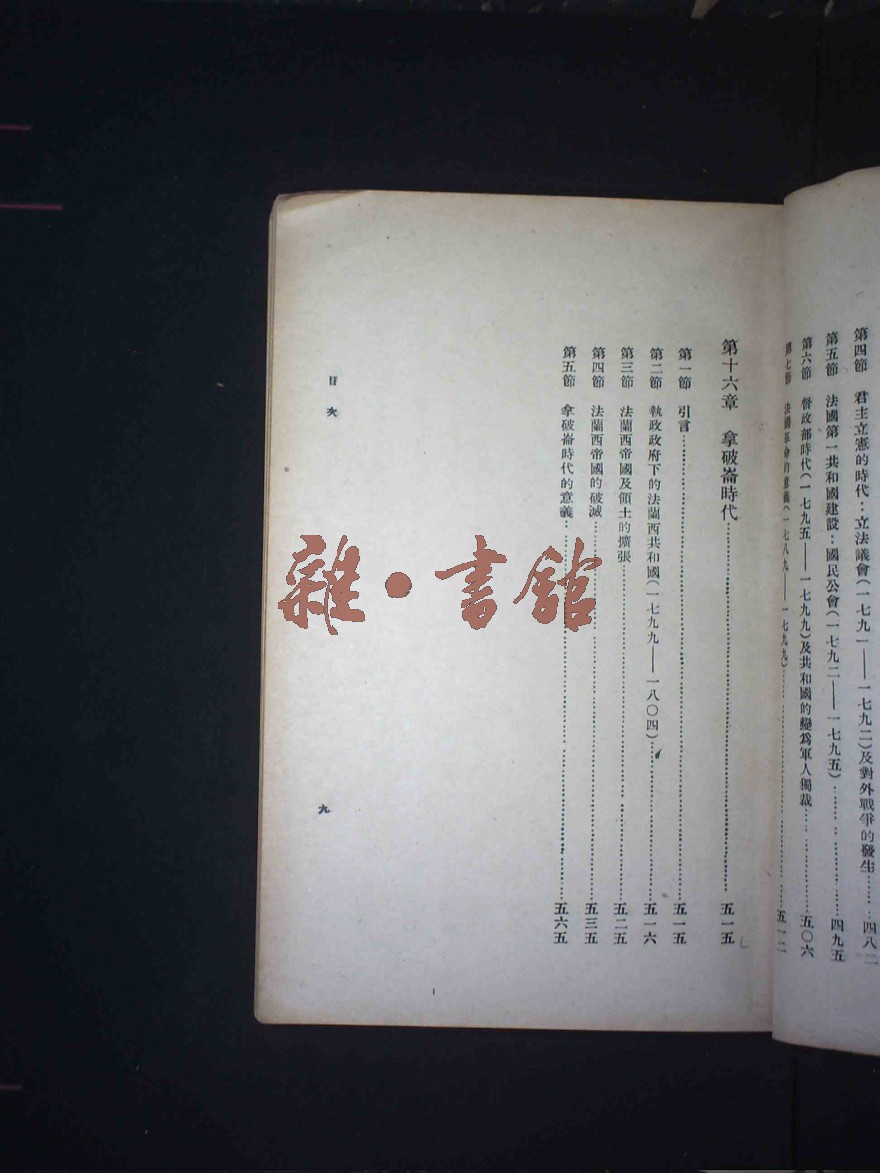 第四節　君主立憲的時代：立法議會（一七九一——一七九二）及對外戰爭的發生……四八二
第五節　法國第一共和國建設：國民公會（一七九二——一七九五）……四九五
第六節　督政部時代（一七九五——一七九九）及共和國的變爲軍人獨裁……五〇六
第七節　法國革命的意義（一七八九——一七九九）……五一二
第十六章　拿破崙時代……五一五
第一節　引言……五一五
第二節　執政政府下的法蘭西共和國（一七九九——一八〇四）……五一六
第三節　法蘭西帝國及領土的擴張……五二五
第四節　法蘭西帝國的破滅……五三五
第五節　拿破崙時代的意義……五六五
目次
九
雜·書館